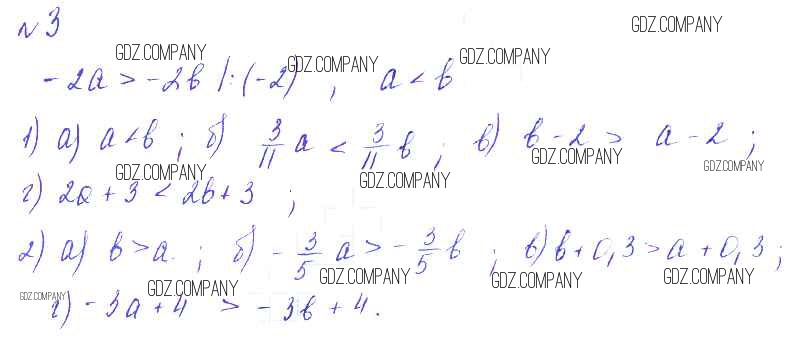 №3
GDZ.COMPANY
GDZ.COMPANY GDZ.COMPANY GDZ.COMPANY
-2a > -2b |:(-2) , a < b
1) а) a < b ; б) 3/11 a < 3/11 b ; в) b - 2 > a - 2 ;
GDZ.COMPANY GDZ.COMPANY GDZ.COMPANY GDZ.COMPANY
г) 2a + 3 < 2b + 3 ;
2) а) b > a. ; б) - 3/5 a > - 3/5 b ; в) b + 0,3 > a + 0,3 ;
GDZ.COMPANY GDZ.COMPANY GDZ.COMPANY GDZ.COMPANY GDZ.COMPANY
г) -3a + 4 > -3b + 4.